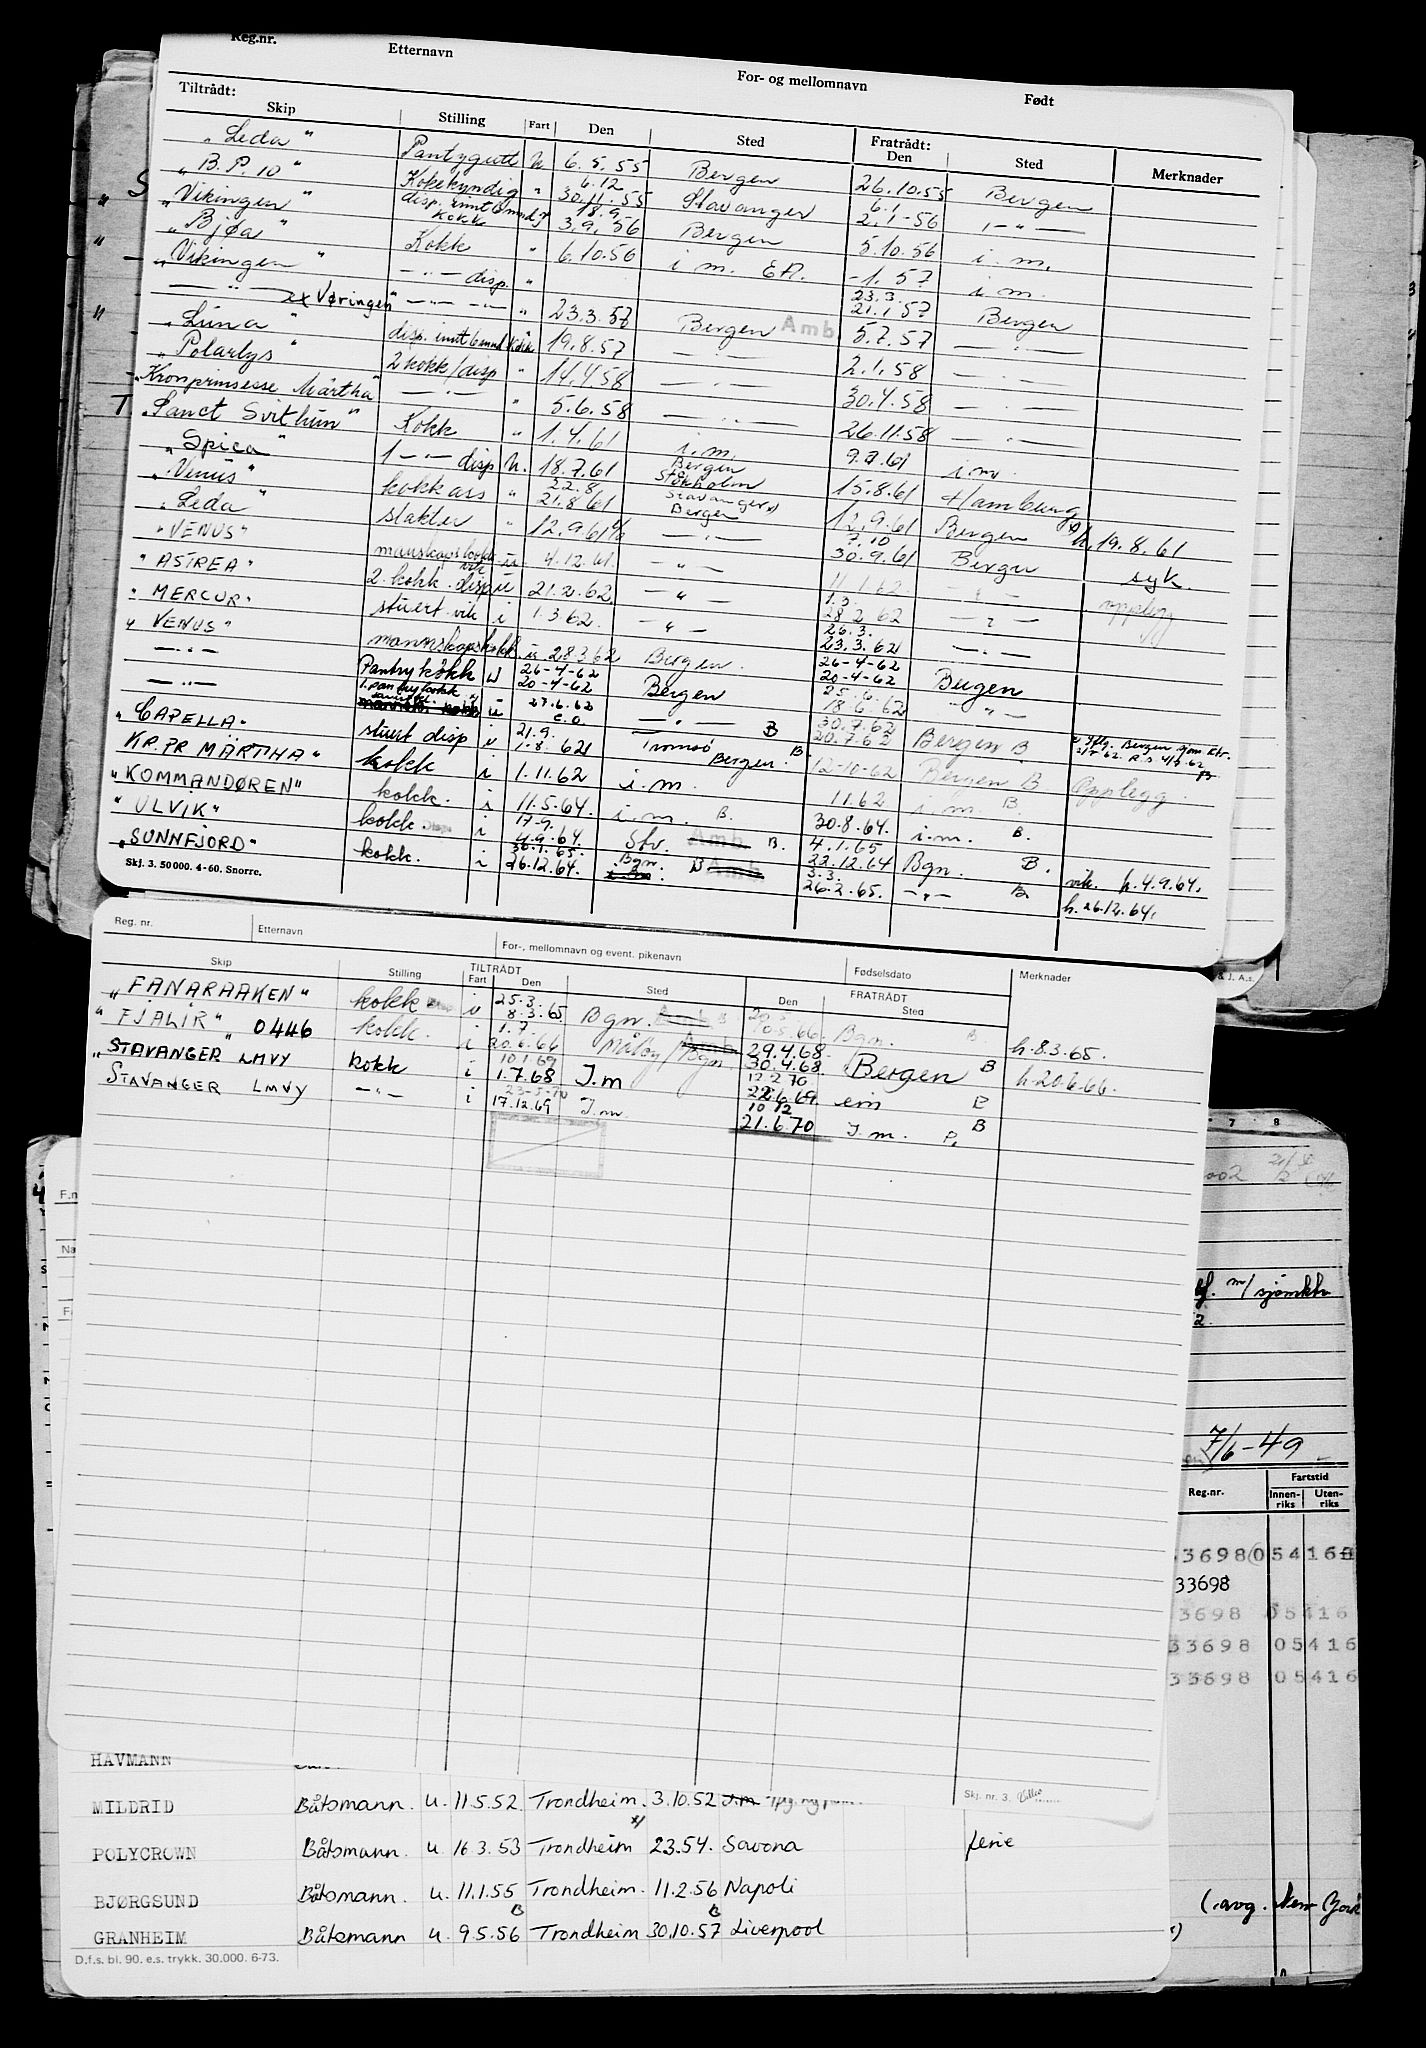 Reg.nr. Etternavn For- og mellomnavn Født
Tiltrådt: Fratrådt:
Skip Stilling Fart Den Sted Den Sted Merknader
"Leda" Pantrygutt u 6.5.55 Bergen 26.10.55 Bergen
"B.P. 10" Kokekyndig " 6.12 30.11.55 Stavanger 6.1 2.1-56 - " -
"Vikingen" disp. kokk 18.9. 3.9.56 Bergen 5.10.56 i.m.
"Bjøa" Kokk " 6.10.56 i m. -1.57 i m.
"Vikingen" - " - disp. " 23.3. 21.1.57 Bergen
- " - ex Vøringen" - " - - " - " 23.3.57 Bergen Amb. 5.7.57 - " -
"Luna" disp. 19.8.57 - " - 2.1.58 - " -
"Polarlys" 2 kokk/disp " 14.4.58 - " - 30.4.58 - " -
"Kronprinsesse Märtha" - " - " 5.6.58 - " - 26.11.58 - " -
"Sanct Svithun" Kokk " 1.4.61 i.m. 9.7.61 i.m.
"Spica" 1 - " - disp u. 18.7.61 Bergen Stokholm 15.8.61 Hamburg h. 19.8.61
"Venus" kokk ass " 22.8 21.8.61 Stavanger Bergen 12.9.61 Bergen syk.
"Leda" slakter " 12.9.61 - " - 7.10 30.9.61 Bergen
"VENUS" mannskapskokk u. 4.12.61 - " - 11.1.62 - " - opplegg
"ASTREA" 2. kokk. disp u 21.2.62 - " - 1.3. 28.2.62 - " -
"MERCUR" stuert vik i 1.3.62. - " - 26.3. 23.3.62 - " -
"VENUS" mannskapskokk u 28.3.62 Bergen. 26-4-62 20-4-62 Bergen
- " - Pantrykokk u 26-4-62 20-4-62 Bergen 25.6. 18.6.62 - " -
- " - 1. pantrykokk u 27.6.62 - " - B 30.7.62 20.7.62 Bergen B
"CAPELLA" stuert disp u 21.9. 1.8.62 Tromsø Bergen. B. 12-10-62 Bergen B Opplegg.
KR.PR MÄRTHA" kokk i 1.11.62 i.m. 11.62 i m. B.
"KOMMANDØREN" kokk. i 11.5.64. i.m. B. 30.8.64. i.m. B.
"ULVIK" kokk. i 17.9. 4.9.64. Stv. Amb. B. 4.1.65 22.12.64 Bgn. B. vik. h. 4.9.64.
"SUNNFJORD" kokk. i 26.12.64. Bgn. B Amb. 3.3. 26.2.65. - " - B. h. 26.12.64.
Skj. 3. 50000. 4-60. Snorre.
Reg. nr. Etternavn For-, mellomnavn og event. pikenavn Fødselsdato Merknader
TILTRÅDT FRATRÅDT
Skip Stilling Fart Den Sted Den Sted
"FANARAAKEN" kokk i 25.3. 8.3.65 Bgn. 10.5.66 Bgn. B h. 8.3.65.
"FJALIR" 0446 kokk. i 1.7. 20.6.66 Måløy/Bgn Amb. 29.4.68. 30.4.68 Bergen B h. 20.6.66.
"STAVANGER" LMVY kokk i 10.1.69 1.7.68 I.m 12.2.70 22.6.69. em B
STAVANGER LMVY - " - i 23-5-70 17.12.69 I.m. 10.12 21.6.70 I.m. B
& J. A.s.
7 8
m/sjømkh
7/6-49
Fartstid
Reg.nr. Innen-riks Uten-riks
33698 05416
33698
3698 05416
33698 05416
33698 05416
Skj. nr. 3.
HAVMANN
MILDRID Båtsmann. u. 11.5.52. Trondheim. 3.10.52 I.m
POLYCROWN Båtsmann. u. 16.3.53 Trondheim x) 2.3.54. Savona ferie
BJØRGSUND Båtsmann. u. 11.1.55 Trondheim. 11.2.56 Napoli
GRANHEIM Båtsmann u. 9.5.56 B Trondheim 30.10.57 B Liverpool
(avg. New York
D.f.s. bl. 90. e.s. trykk. 30.000. 6-73.